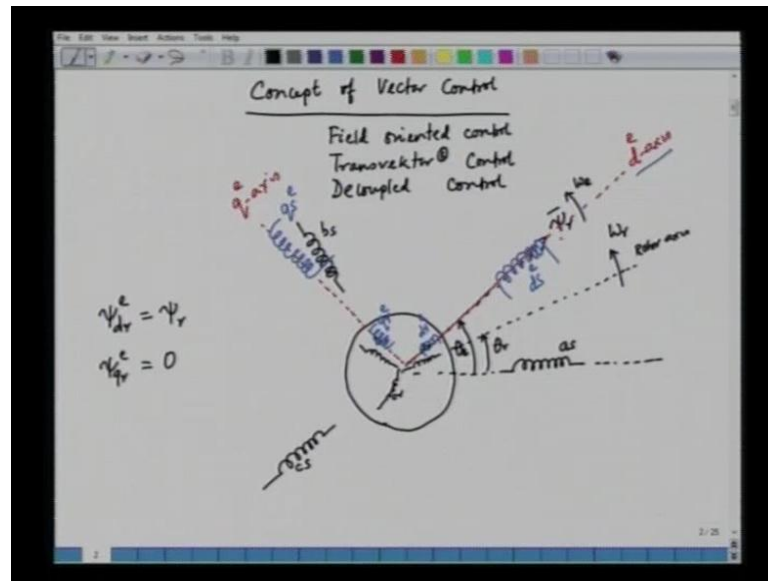 File Edit View Insert Actions Tools Help
Concept of Vector Control
Field oriented control
Transvektor® Control
Decoupled Control
dᵉ-axis
qᵉ-axis
qsᵉ
bs
ωe
ψ̄r
ωr
Rotor axis
dsᵉ
ψdrᵉ = ψr
θr
as
ψqrᵉ = 0
cs
2/25
2